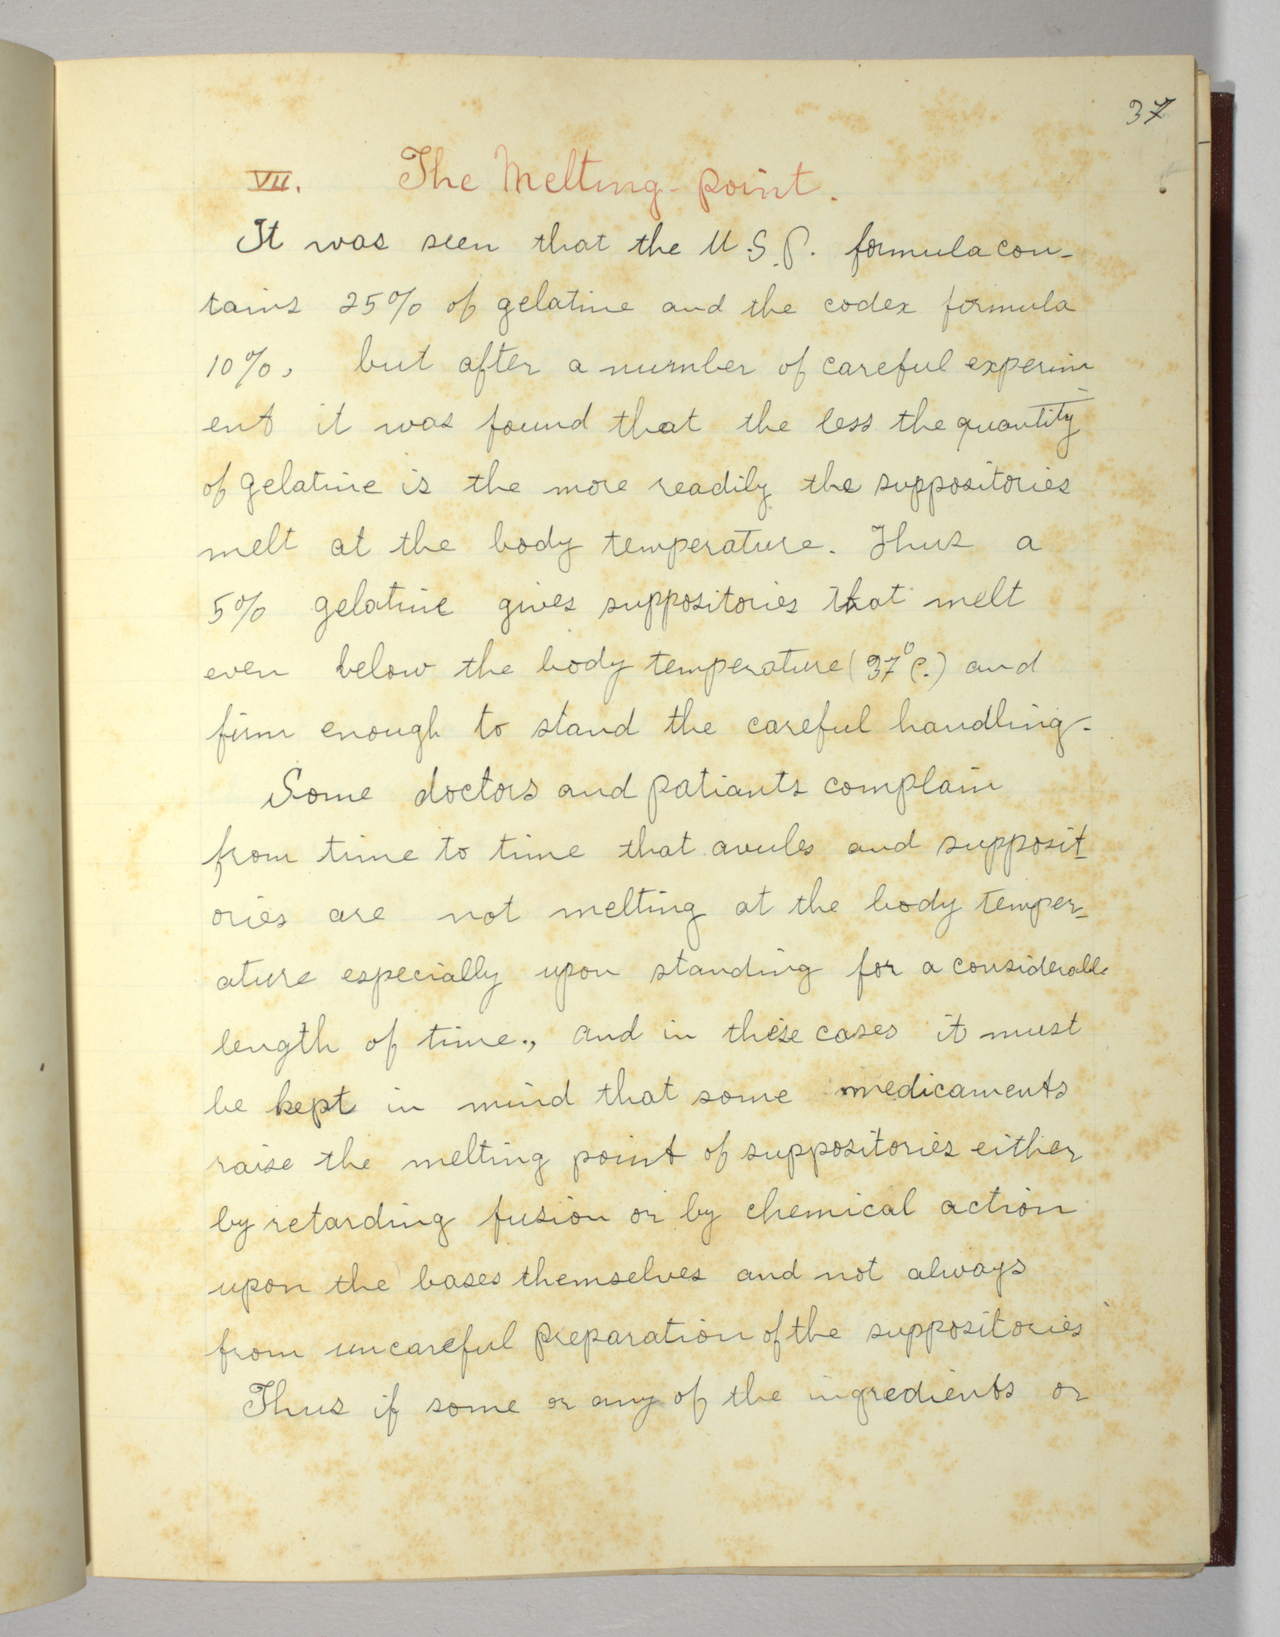 37
VII. The Melting-point.
It was seen that the U.S.P. formula con-
tains 25% of gelatine and the codex formula
10%, but after a number of careful experim
ent it was found that the less the quantity
of gelatine is the more readily the suppositories
melt at the body temperature. Thus a
5% gelatine gives suppositories that melt
even below the body temperature (37°C.) and
firm enough to stand the careful handling.
Some doctors and patiants complain
from time to time that avules and supposit
ories are not melting at the body temper-
ature especially upon standing for a considerable
length of time., and in these cases it must
be kept in mind that some medicaments
raise the melting point of suppositories either
by retarding fusion or by chemical action
upon the bases themselves and not always
from uncareful preparation of the suppositories
Thus if some or any of the ingredients or